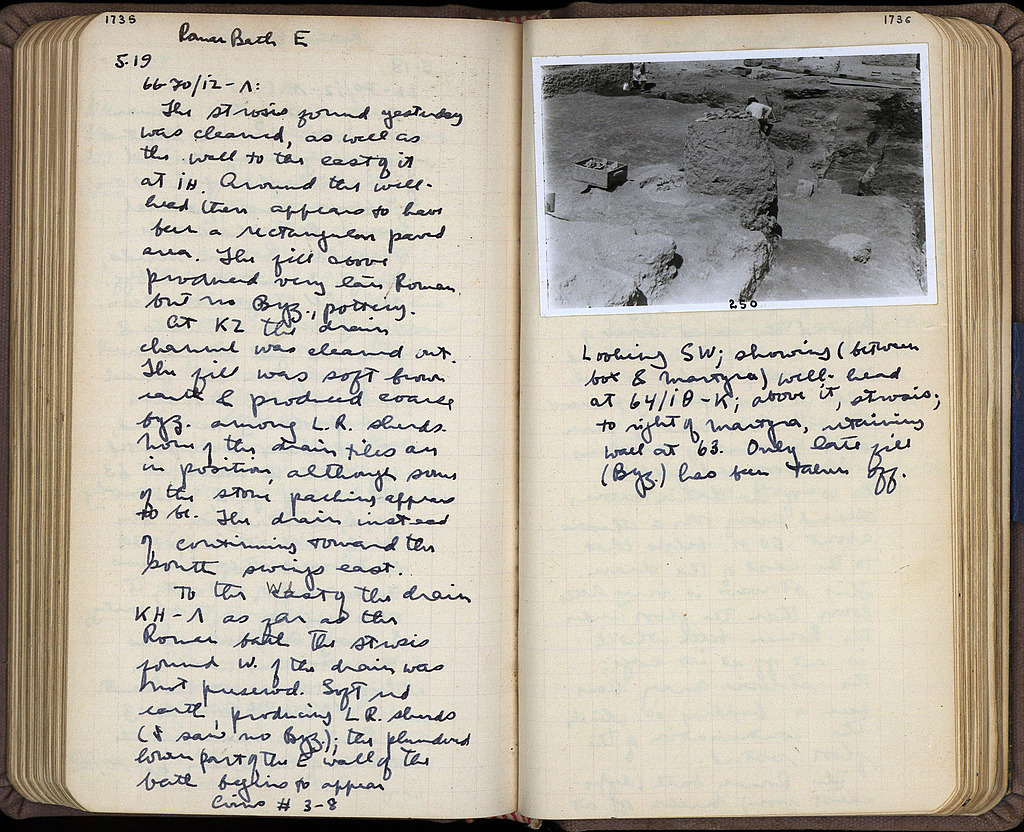 1735
Roman Bath E
5.19
66-70/ΙΖ-Λ:
The strosis found yesterday
was cleaned, as well as
the well to the east of it
at ΙΗ. Around the well-
head there appears to have
been a rectangular paved
area. The fill above
produced very late Roman
but no Byz. pottery.
At ΚΖ the drain
channel was cleaned out.
The fill was soft brown
earth & produced coarse
byz. among L.R. sherds.
None of the drain tiles are
in position, although some
of the stone packing appears
to be. The drain instead
of continuing toward the
south swings east.
To the east of the drain
ΚΗ-Λ as far as the
Roman bath the strosis
found W. of the drain was
not preserved. Soft red
earth, producing L.R. sherds
(I saw no Byz); the plundered
lower part of the E wall of the
bath begins to appear
Coins # 3-8
1736
250
Looking SW; showing (between
box & martyra) well-head
at 64/ΙΘ-Κ; above it, strosis;
to right of martyra, retaining
wall at 63. Only late fill
(Byz.) has been taken off.